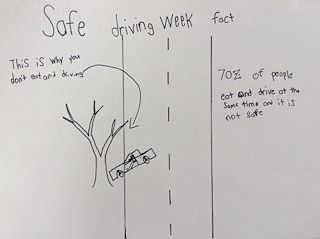 Safe driving week fact
This is why you
don't eat and driving
70% of people
eat and drive at the
same time and it is
not safe